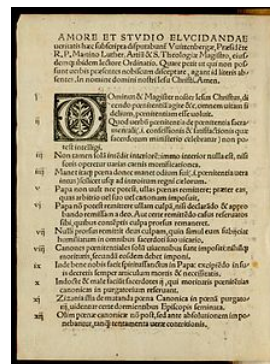 AMORE ET STVDIO ELVCIDANDAE
ueritatis hæc subscripta disputabunť Vuittenbergæ, Præsidẽte
R. P. Martino Luther. Artiũ & S. Theologiæ Magistro, eius-
demq; ibidem lectore Ordinario. Quare petit ut qui non pos-
sunt uerbis præsentes nobiscum disceptare, agant id literis ab-
sentes. In nomine domini nostri Iesu Christi. Amen.
i Ominus & Magister noster Iesus Christus, di-
cendo pœnitentiã agite &c. omnem uitam fi-
delium, pœnitentiam esse uoluit.
ij Quod uerbũ pœnitentia de pœnitentia sacra-
mentali (.i. confessionis & satisfactionis quæ
sacerdotum ministerio celebratur) non po-
test intelligi.
iij Non tamen solã intẽdit interiorẽ: immo interior nulla est, nisi
foris operetur uarias carnis mortificationes.
iiij Manet itaq; pœna donec manet odium sui (.i. pœnitentia uera
intus) scilicet usq; ad introitum regni cælorum.
v Papa non uult nec potest, ullas pœnas remittere: præter eas,
quas arbitrio uel suo uel canonum imposuit.
vj Papa nõ potest remittere ullam culpã, nisi declarãdo & appro-
bando remissam a deo. Aut certe remittẽdo casus reseruatos
sibi, quibus contẽptis culpa prorsus remaneret.
vij Nulli prorsus remittit deus culpam, quin simul eum subijciat
humiliatum in omnibus sacerdoti suo uicario.
viij Canones pœnitentiales solũ uiuentibus sunt impositi: nihilq;
morituris, secundũ eosdem debet imponi.
ix Inde bene nobis facit spiritussanctus in Papa: excipiẽdo in su-
is decretis semper articulum mortis & necessitatis.
x Indocte & male faciũt sacerdotes ij, qui morituris pœnitẽtias
canonicas in purgatorium reseruant.
xj Zizania illa de mutanda pœna Canonica in pœnã purgato-
rij, uidentur certe dormientibus Episcopis seminata.
xij Olim pœnæ canonicæ nõ post, sed ante absolutionem im-
ponebantur, tanq̃ tentamenta ueræ contritionis.